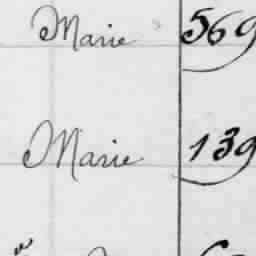 Marie 569
Marie 139